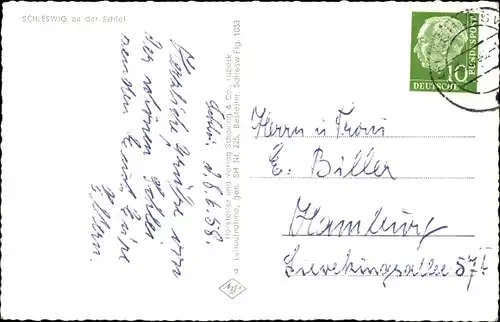 SCHLESWIG an der Schlei
Herzliche Grüße von
der schönen Schlei
senden
Schlei, d. 8.6.58.
Hersteller und Verlag Schöning & Co., Lübeck
a Luftaufnahme, gen. SH Nr. 225, Bestellnr. Schlesw Flg. 1035
Herrn u. Frau
E. Biller
Hamburg
Sievekingsallee 57 I
10
DEUTSCHE
BUNDESPOST